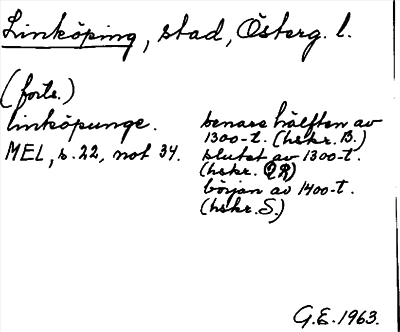 Linköping, stad, Österg. l.
(forts.)
linköpunge. benare hälften av
1300-t. (hskr. B.)
MEL, s. 22, not 34. slutet av 1300-t.
(hskr. QR)
början av 1400-t.
(hskr. S.)
G.E. 1963.